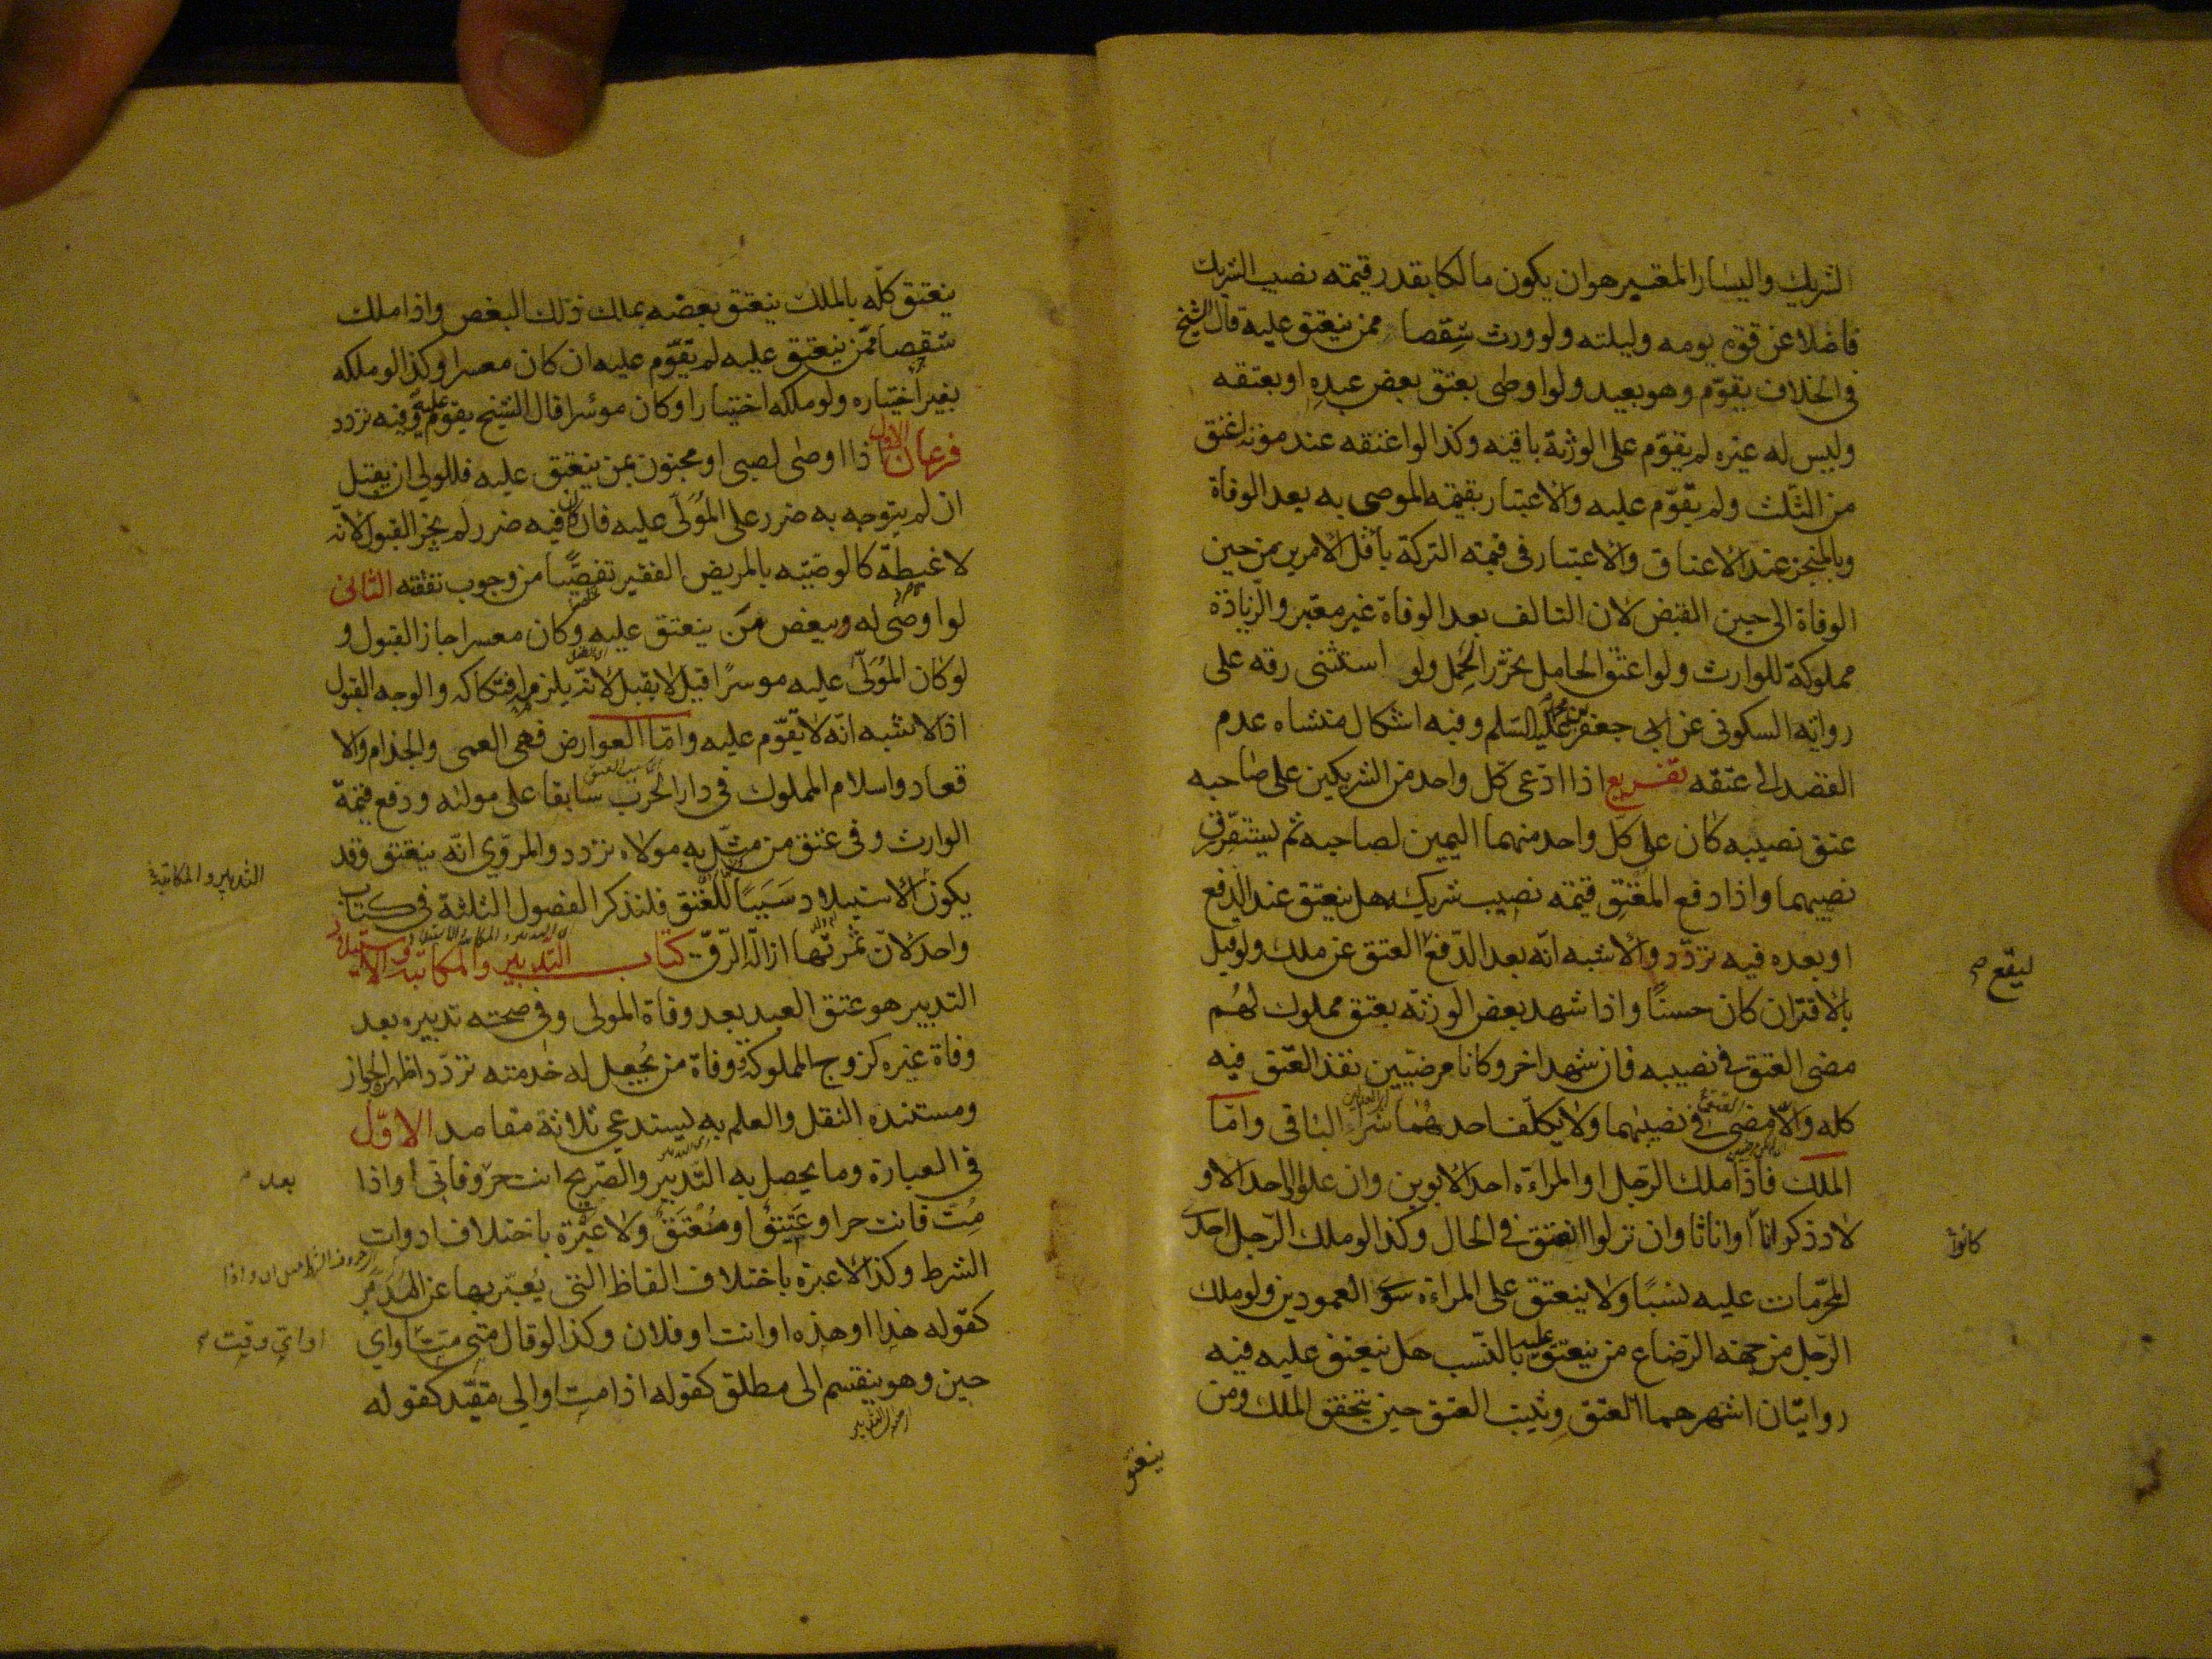 الشريك واليسار المعتبر هو ان يكون مالكا بقدر قيمته نصيب الشريك
فاضلا عن قوت يومه وليلته ولو ورث شقصا ممن ينعتق عليه قال الشيخ
فى الخلاف يقوّم وهو بعيد ولو اوصى بعتق بعض عبده او بعتقه
وليس له غيره لم يقوّم على الورثة باقيه وكذا لو اعتقه عند موته اعتق
من الثلث ولم يقوّم عليه والاعتبار بقيمة الموصى به بعد الوفاة
وبالمنجز عند الاعتاق والاعتبار فى قيمته التركة باقل الامرين من حين
الوفاة الى حين القبض لان التالف بعد الوفاة غير معتبر والزيادة
مملوكة للوارث ولو اعتق الحامل تحرّر الحمل ولو استثنى رقه على
رواية السكونى عن ابى جعفر عليه السلم وفيه اشكال منشاه عدم
القصد الى عتقه تفريع اذا ادّعى كل واحد من الشريكين على صاحبه
عتق نصيبه كان على كل واحد منهما اليمين لصاحبه ثم ليستقر رق
نصيبهما واذا دفع المعتق قيمته نصيب شريكه هل ينعتق عند الدفع
او بعده فيه تردّد والاشبه انه بعد الدفع العتق عن ملك ولو قيل
ليقع صح
بالاقتران كان حسنا واذا شهد بعض الورثة بعتق مملوك لهم
مضى العتق فى نصيبه فان شهد اخر وكانا مرضيين نفذ العتق فيه
كله والّا مضى فى نصيبهما ولا يكلف احدهما شراء الباقى وامّا
الملك فاذا ملك الرجل او المراءة احد الابوين وان علوا او احد الاو
لاد ذكرانا او اناثا وان نزلوا انعتق فى الحال وكذا لو ملك الرجل احدى
كانوا
المحرّمات عليه نسبًا ولا ينعتق على المراءة سوى العمودين ولو ملك
الرجل من جهة الرضاع من ينعتق عليه بالنسب هل ينعتق عليه فيه
روايتان اشهرهما العتق ويثبت العتق حين يتحقق الملك ومن
ينعتق
ينعتق كلّه بالملك ينعتق بعضه بملك ذلك البعض واذا ملك
شقصا ممّن ينعتق عليه لم يقوّم عليه ان كان معسرا وكذا لو ملكه
بغير اختياره ولو ملكه اختيارا وكان موسرا قال الشيخ يقوّم عليه وفيه تردد
فرعان الاول اذا اوصى لصبى او مجنون بمن ينعتق عليه فللولي ان يقبل
ان لم يتوجه به ضرر على المولّى عليه فان كان فيه ضرر لم يجز القبول لانه
لا غبطة كالوصيّة بالمريض الفقير تفصّيًا من وجوب نفقته الثانى
لو اوصى له ببعض من ينعتق عليه وكان معسرا جاز القبول و
لو كان المولّى عليه موسرًا قيل لا يقبل لانه يلزمه افتكاكه والوجه القبول
اذ الاشبه انّه لا يقوّم عليه وامّا العوارض فهى العمى والجذام والا
قعاد واسلام المملوك فى دار الحرب سابقا على مولاه ودفع قيمة
الوارث وفى عتق من مثّل به مولاه تردد والمروّي انّه ينعتق وقد
يكون الاستيلاد سَبَبًا للعتق فلنذكر الفصول الثلثة فى كتاب
التدبير والمكاتبة
واحد لان ثمرتها ازالة الرّق كتاب التدبير والمكاتبة والاستيلاد
التدبير هو عتق العبد بعد وفاة المولى وفى صحته تدبيره بعد
وفاة غيره كزوج المملوكة ووفاة من يُجعل له خدمته تردّد اظهره الجواز
ومستنده النقل والعلم به يستدعى ثلاثة مقاصد الاوّل
فى العبارة وما يحصل به التدبير والصّريح انت حرّ وفاتى او اذا
بعد
مُتّ فانت حر او عَتِيقٌ او مُعْتَقٌ ولا عبرة باختلاف ادوات
الشرط وكذا لا عبرة باختلاف الفاظ التى يُعبّر بها عن المدبّر
كقوله هذا او هذه او انت او فلان وكذا لو قال متى متّ او اي
او اي وقت
حين وهو ينقسم الى مطلق كقوله اذا مت والى مقيّد كقوله